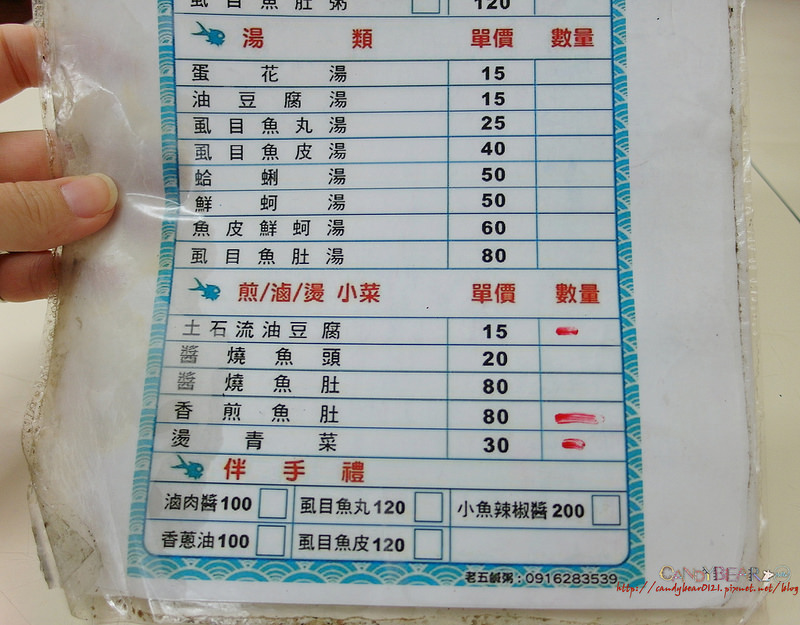 虱目魚肚粥 120
湯類 單價 數量
蛋花湯 15
油豆腐湯 15
虱目魚丸湯 25
虱目魚皮湯 40
蛤蜊湯 50
鮮蚵湯 50
魚皮鮮蚵湯 60
虱目魚肚湯 80
煎/滷/燙 小菜 單價 數量
土石流油豆腐 15
醬燒魚頭 20
醬燒魚肚 80
香煎魚肚 80
燙青菜 30
伴手禮
滷肉醬100 虱目魚丸120 小魚辣椒醬200
香蔥油100 虱目魚皮120
老五鹹粥:0916283539
CANDYBEAR
http://candybear0121.pixnet.net/blog